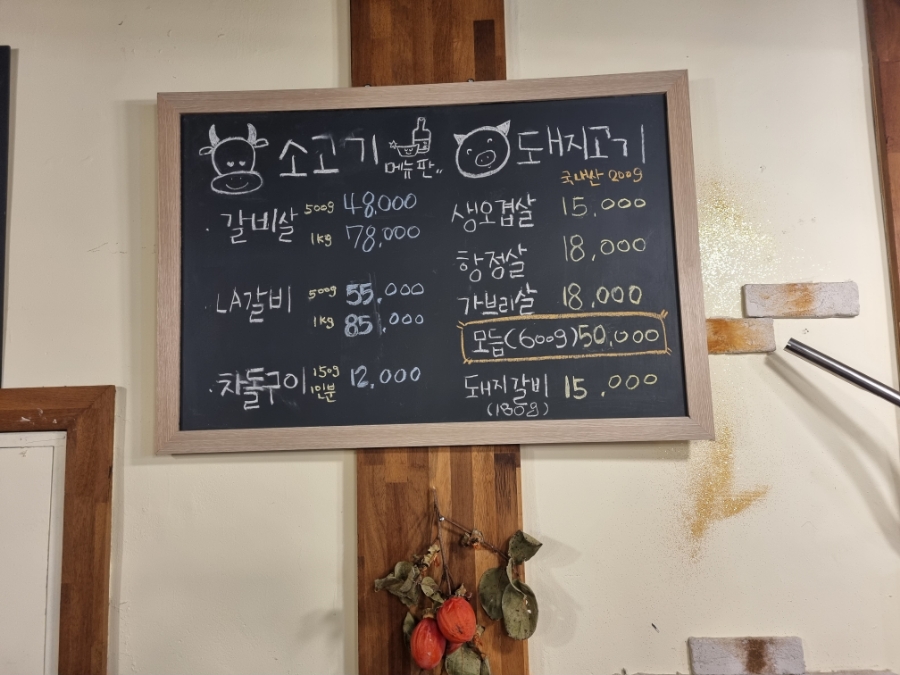 소고기
메뉴판..
갈비살 500g 48,000
1kg 78,000
LA갈비 500g 55,000
1kg 85,000
차돌구이 150g 12,000
1인분
돼지고기
국내산 200g
생오겹살 15,000
항정살 18,000
가브리살 18,000
모듬(600g)50,000
돼지갈비 15,000
(180g)